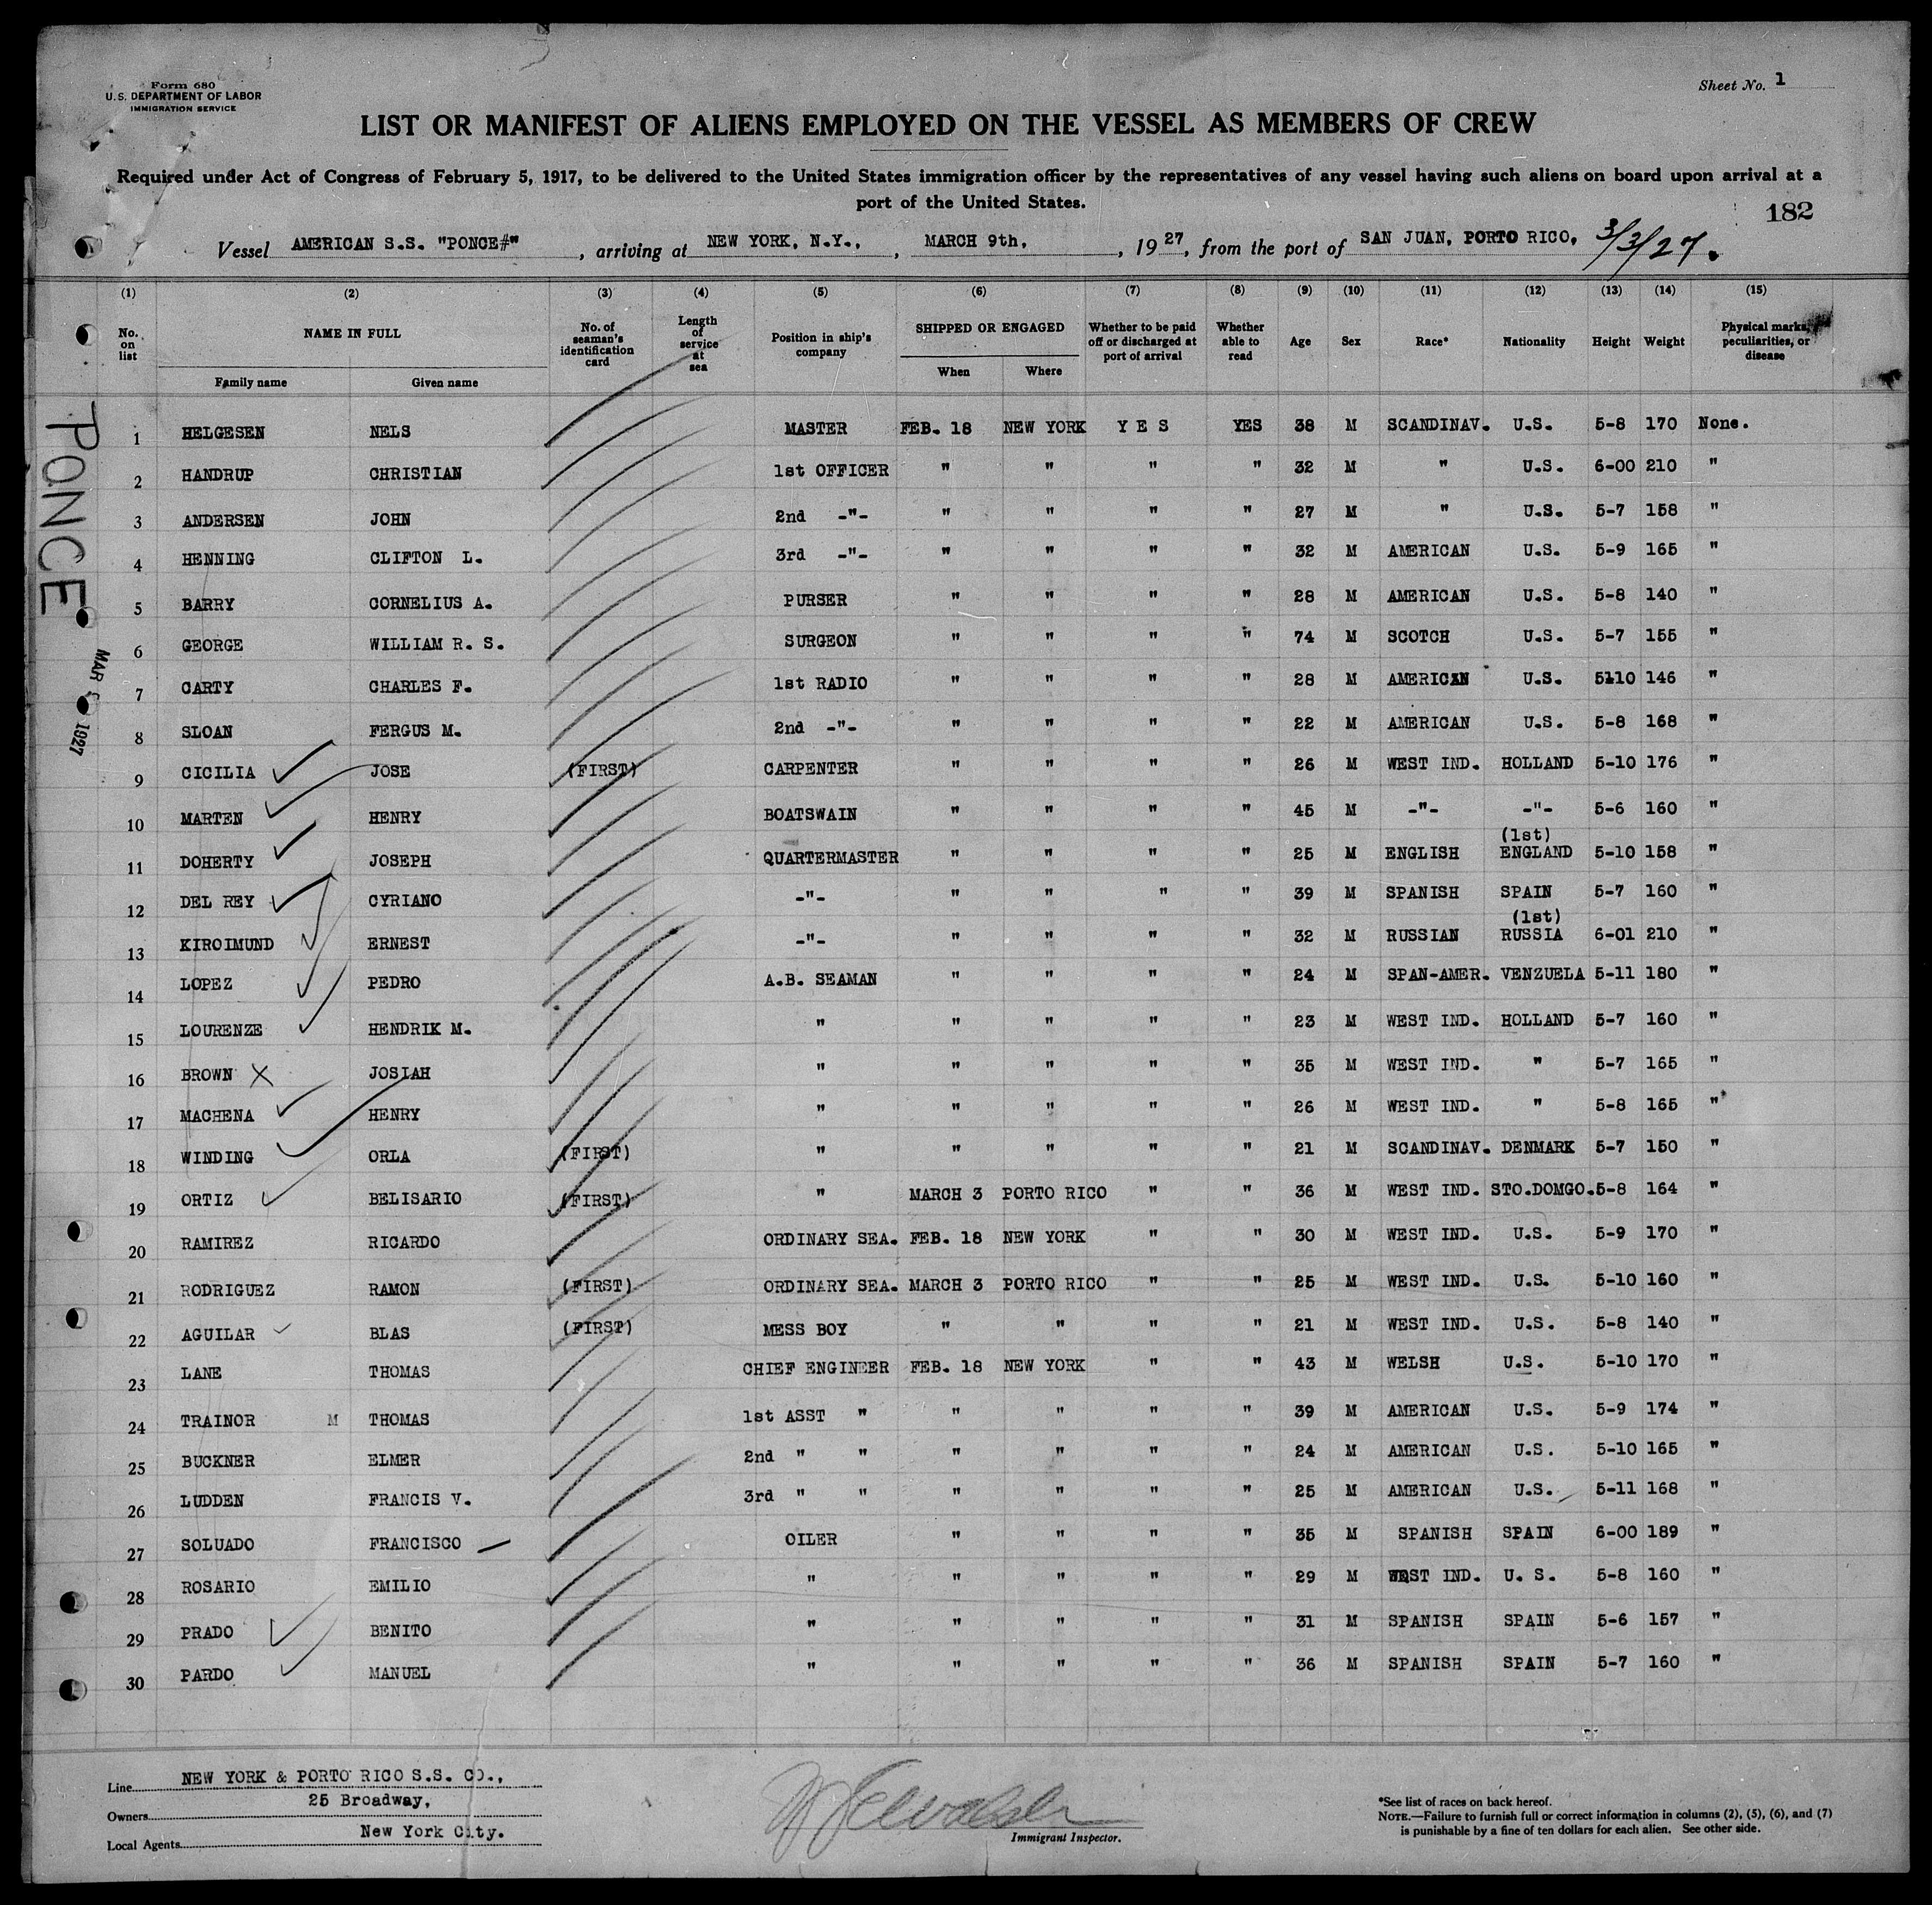 Form 680
U. S. DEPARTMENT OF LABOR
IMMIGRATION SERVICE
Sheet No. 1
LIST OR MANIFEST OF ALIENS EMPLOYED ON THE VESSEL AS MEMBERS OF CREW
Required under Act of Congress of February 5, 1917, to be delivered to the United States immigration officer by the representatives of any vessel having such aliens on board upon arrival at a
port of the United States.
182
Vessel AMERICAN S.S. "PONCE#", arriving at NEW YORK, N.Y., MARCH 9th, , 19 27, from the port of SAN JUAN, PORTO RICO, 3/3/27.
(1) (2) (3) (4) (5) (6) (7) (8) (9) (10) (11) (12) (13) (14) (15)
No. on list NAME IN FULL Family name Given name No. of seaman's identification card Length of service at sea Position in ship's company SHIPPED OR ENGAGED When Where Whether to be paid off or discharged at port of arrival Whether able to read Age Sex Race* Nationality Height Weight Physical marks, peculiarities, or disease
PONCE
MAR 1927
1 HELGESEN NELS MASTER FEB. 18 NEW YORK Y E S YES 38 M SCANDINAV. U.S. 5-8 170 None.
2 HANDRUP CHRISTIAN 1st OFFICER " " " " 32 M " U.S. 6-00 210 "
3 ANDERSEN JOHN 2nd -"- " " " " 27 M " U.S. 5-7 158 "
4 HENNING CLIFTON L. 3rd -"- " " " " 32 M AMERICAN U.S. 5-9 165 "
5 BARRY CORNELIUS A. PURSER " " " " 28 M AMERICAN U.S. 5-8 140 "
6 GEORGE WILLIAM R. S. SURGEON " " " " 74 M SCOTCH U.S. 5-7 155 "
7 CARTY CHARLES F. 1st RADIO " " " " 28 M AMERICAN U.S. 5110 146 "
8 SLOAN FERGUS M. 2nd -"- " " " " 22 M AMERICAN U.S. 5-8 168 "
9 CICILIA JOSE (FIRST) CARPENTER " " " " 26 M WEST IND. HOLLAND 5-10 176 "
10 MARTEN HENRY BOATSWAIN " " " " 45 M -"- -"- 5-6 160 "
11 DOHERTY JOSEPH QUARTERMASTER " " " " 25 M ENGLISH (1st) ENGLAND 5-10 158 "
12 DEL REY CYRIANO -"- " " " " 39 M SPANISH SPAIN 5-7 160 "
13 KIROIMUND ERNEST -"- " " " " 32 M RUSSIAN (1st) RUSSIA 6-01 210 "
14 LOPEZ PEDRO A.B. SEAMAN " " " " 24 M SPAN-AMER. VENZUELA 5-11 180 "
15 LOURENZE HENDRIK M. " " " " " 23 M WEST IND. HOLLAND 5-7 160 "
16 BROWN X JOSIAH " " " " " 35 M WEST IND. " 5-7 165 "
17 MACHENA HENRY " " " " " 26 M WEST IND. " 5-8 165 "
18 WINDING ORLA (FIRST) " " " " " 21 M SCANDINAV. DENMARK 5-7 150 "
19 ORTIZ BELISARIO (FIRST) " MARCH 3 PORTO RICO " " 36 M WEST IND. STO.DOMGO. 5-8 164 "
20 RAMIREZ RICARDO ORDINARY SEA. FEB. 18 NEW YORK " " 30 M WEST IND. U.S. 5-9 170 "
21 RODRIGUEZ RAMON (FIRST) ORDINARY SEA. MARCH 3 PORTO RICO " " 25 M WEST IND. U.S. 5-10 160 "
22 AGUILAR BLAS (FIRST) MESS BOY " " " " 21 M WEST IND. U.S. 5-8 140 "
23 LANE THOMAS CHIEF ENGINEER FEB. 18 NEW YORK " " 43 M WELSH U.S. 5-10 170 "
24 TRAINOR M THOMAS 1st ASST " " " " " 39 M AMERICAN U.S. 5-9 174 "
25 BUCKNER ELMER 2nd " " " " " " 24 M AMERICAN U.S. 5-10 165 "
26 LUDDEN FRANCIS V. 3rd " " " " " " 25 M AMERICAN U.S. 5-11 168 "
27 SOLUADO FRANCISCO OILER " " " " 35 M SPANISH SPAIN 6-00 189 "
28 ROSARIO EMILIO " " " " " 29 M WEST IND. U. S. 5-8 160 "
29 PRADO BENITO " " " " " 31 M SPANISH SPAIN 5-6 157 "
30 PARDO MANUEL " " " " " 36 M SPANISH SPAIN 5-7 160 "
Line NEW YORK & PORTO RICO S.S. CO.,
Owners 25 Broadway,
Local Agents New York City.
Immigrant Inspector.
*See list of races on back hereof.
NOTE.—Failure to furnish full or correct information in columns (2), (5), (6), and (7)
is punishable by a fine of ten dollars for each alien. See other side.